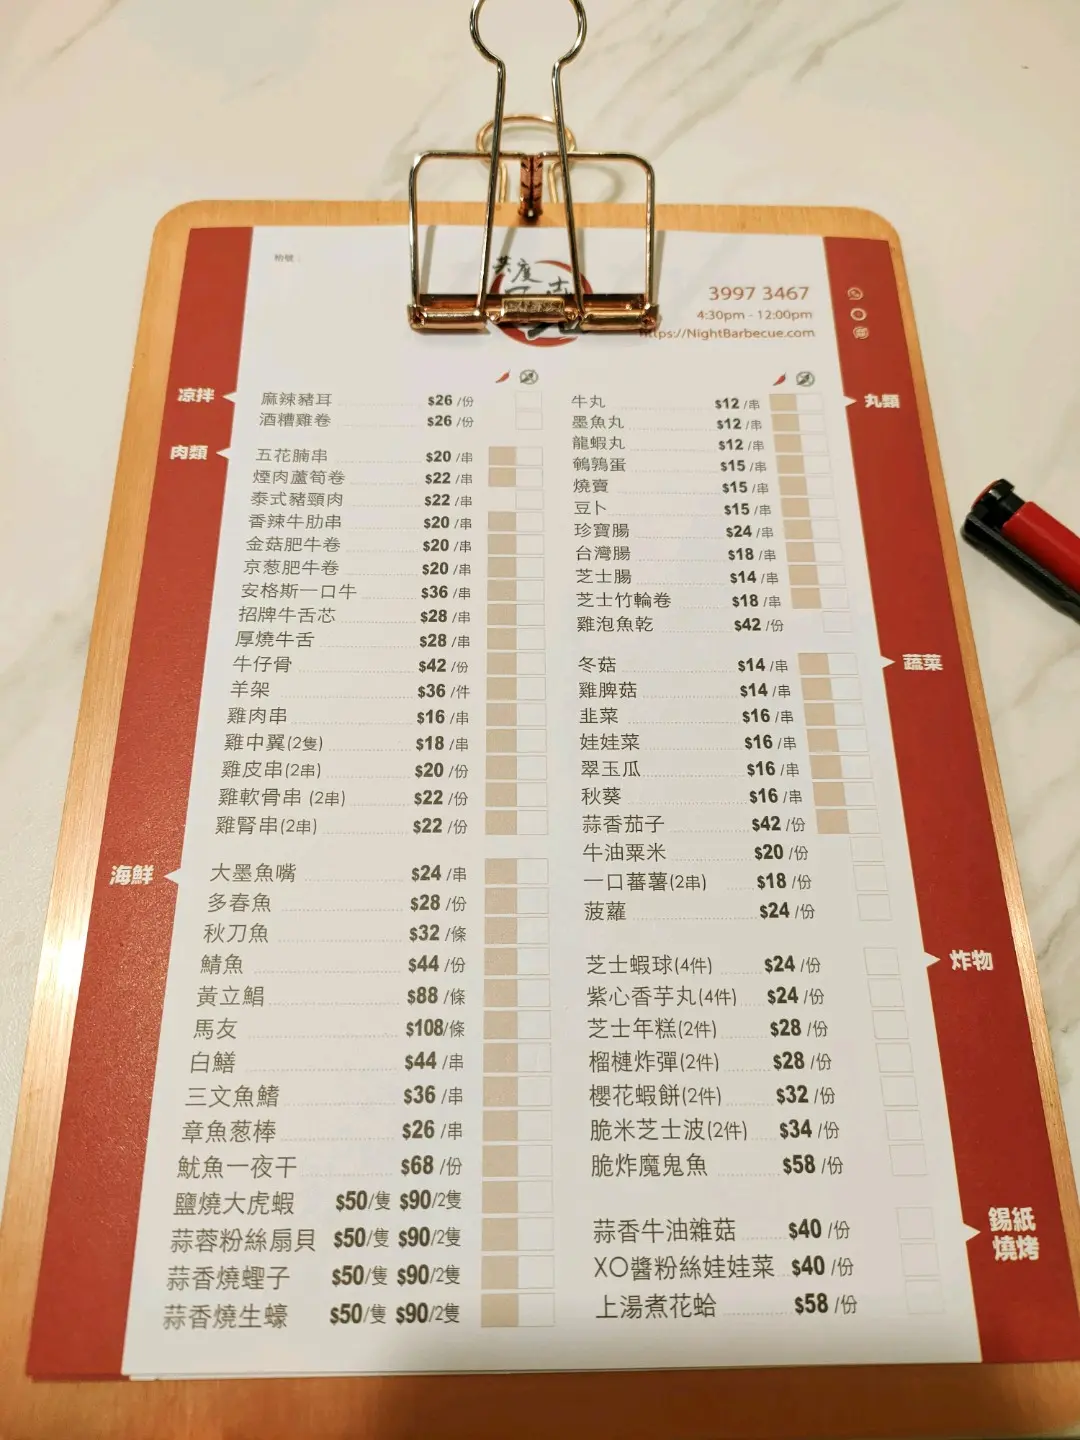 共度
3997 3467
4:30pm - 12:00pm
https://NightBarbecue.com
涼拌
麻辣豬耳 $26 /份
酒糟雞卷 $26 /份
肉類
五花腩串 $20 /串
煙肉蘆筍卷 $22 /串
泰式豬頸肉 $22 /串
香辣牛肋串 $20 /串
金菇肥牛卷 $20 /串
京葱肥牛卷 $20 /串
安格斯一口牛 $36 /串
招牌牛舌芯 $28 /串
厚燒牛舌 $28 /串
牛仔骨 $42 /份
羊架 $36 /件
雞肉串 $16 /串
雞中翼(2隻) $18 /串
雞皮串(2串) $20 /份
雞軟骨串 (2串) $22 /份
雞腎串(2串) $22 /份
海鮮
大墨魚嘴 $24 /串
多春魚 $28 /份
秋刀魚 $32 /條
鯖魚 $44 /份
黃立鯧 $88 /條
馬友 $108/條
白鱔 $44 /串
三文魚鰭 $36 /串
章魚葱棒 $26 /串
魷魚一夜干 $68 /份
鹽燒大虎蝦 $50/隻 $90/2隻
蒜蓉粉絲扇貝 $50/隻 $90/2隻
蒜香燒蟶子 $50/隻 $90/2隻
蒜香燒生蠔 $50/隻 $90/2隻
丸類
牛丸 $12 /串
墨魚丸 $12 /串
龍蝦丸 $12 /串
鵪鶉蛋 $15 /串
燒賣 $15 /串
豆卜 $15 /串
珍寶腸 $24 /串
台灣腸 $18 /串
芝士腸 $14 /串
芝士竹輪卷 $18 /串
雞泡魚乾 $42 /份
蔬菜
冬菇 $14 /串
雞脾菇 $14 /串
韭菜 $16 /串
娃娃菜 $16 /串
翠玉瓜 $16 /串
秋葵 $16 /串
蒜香茄子 $42 /份
牛油粟米 $20 /份
一口蕃薯(2串) $18 /份
菠蘿 $24 /份
炸物
芝士蝦球(4件) $24 /份
紫心香芋丸(4件) $24 /份
芝士年糕(2件) $28 /份
榴槤炸彈(2件) $28 /份
櫻花蝦餅(2件) $32 /份
脆米芝士波(2件) $34 /份
脆炸魔鬼魚 $58 /份
錫紙
燒烤
蒜香牛油雜菇 $40 /份
XO醬粉絲娃娃菜 $40 /份
上湯煮花蛤 $58 /份